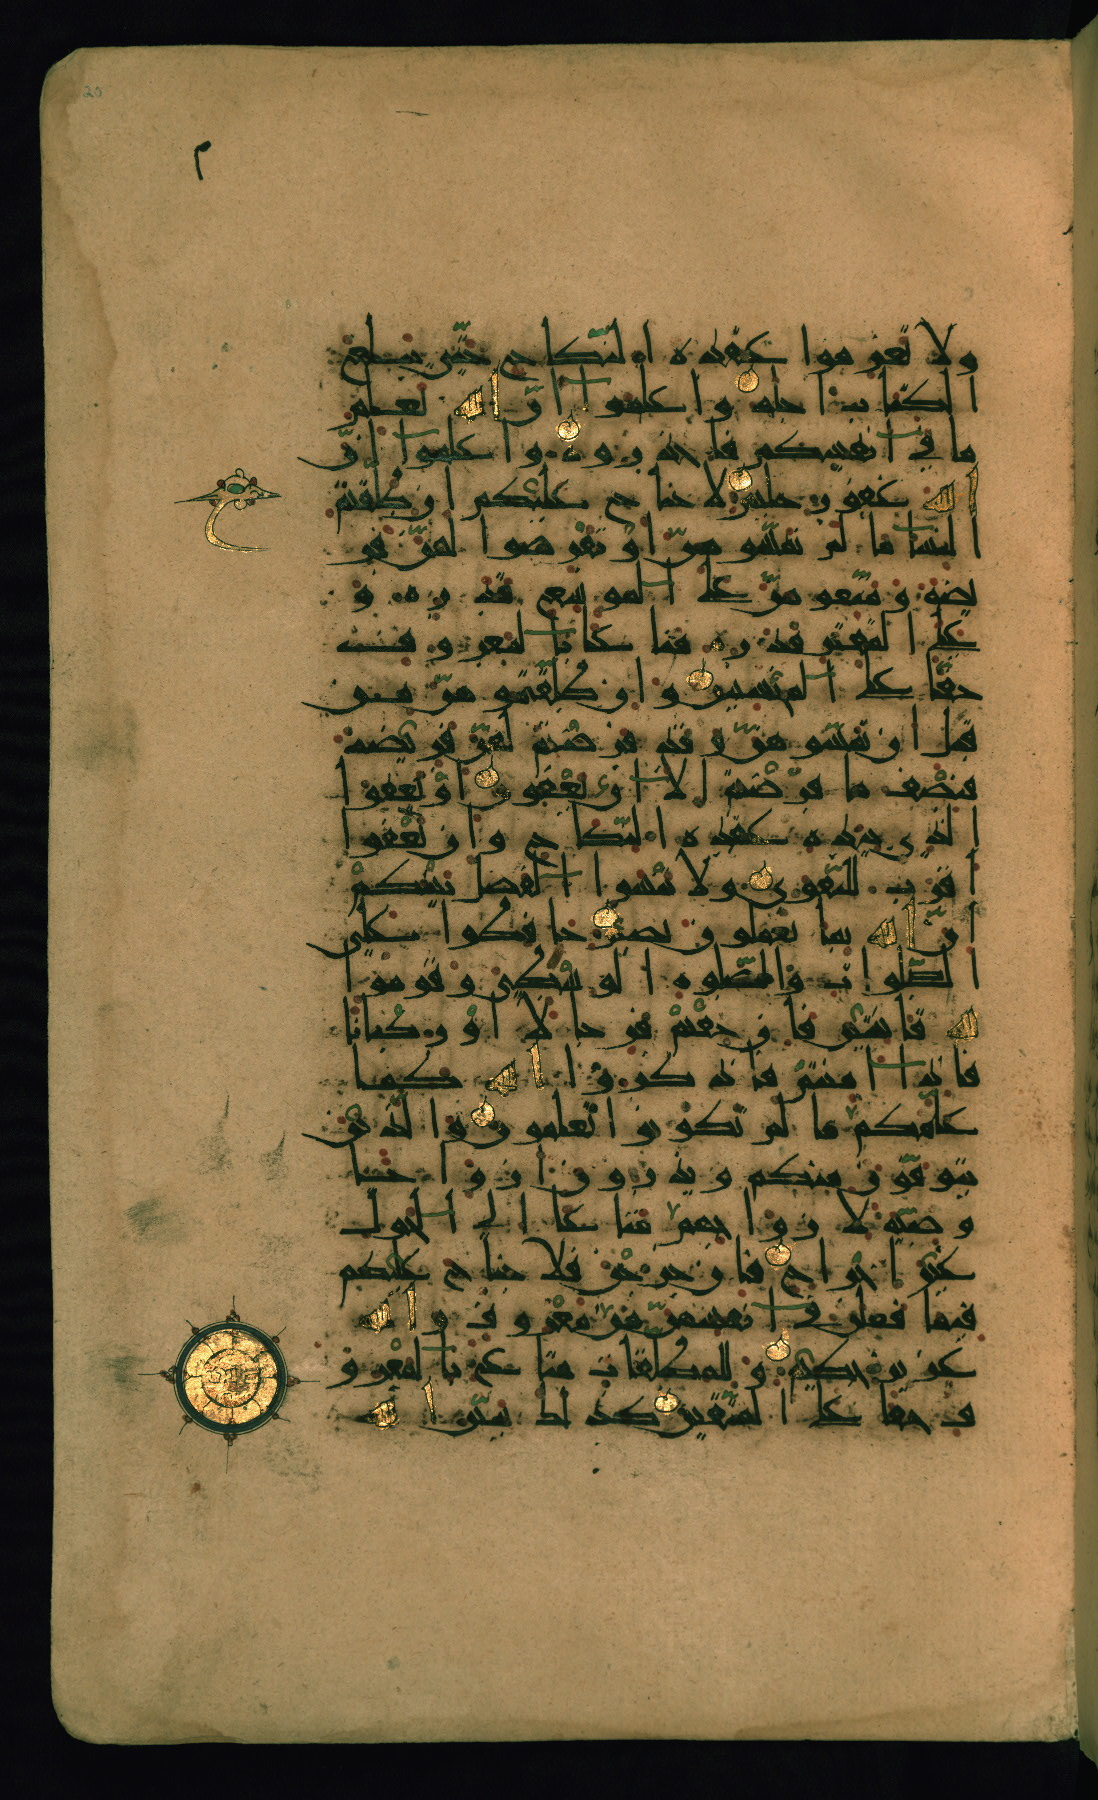 20
م
ولا تعزموا عقدة النكاح حتى يبلغ
الكتاب اجله واعلموا ان الله يعلم
ما في انفسكم فاحذروه واعلموا ان
الله غفور حليم لا جناح عليكم ان طلقتم
النسا ما لم تمسوهن او تفرضوا لهن فر
يضة ومتعوهن على الموسع قدره و
على المقتر قدره متاعا بالمعروف
حقا على المحسنين وان طلقتموهن من
قبل ان تمسوهن وقد فرضتم لهن فريضة
فنصف ما فرضتم الا ان يعفون او يعفوا
الذي بيده عقدة النكاح وان تعفوا
اقرب للتقوى ولا تنسوا الفضل بينكم
ان الله بما تعملون بصير حافظوا على
الصلوات والصلوة الوسطى وقوموا
لله قانتين فان خفتم فرجالا او ركبانا
فاذا امنتم فاذكروا الله كما
علمكم ما لم تكونوا تعلمون والذين
يتوفون منكم ويذرون ازواجا
وصية لازواجهم متاعا الى الحول
غير اخراج فان خرجن فلا جناح عليكم
فيما فعلن في انفسهن من معروف والله
عزيز حكيم وللمطلقات متاع بالمعرو
ف حقا على المتقين كذلك يبين الله